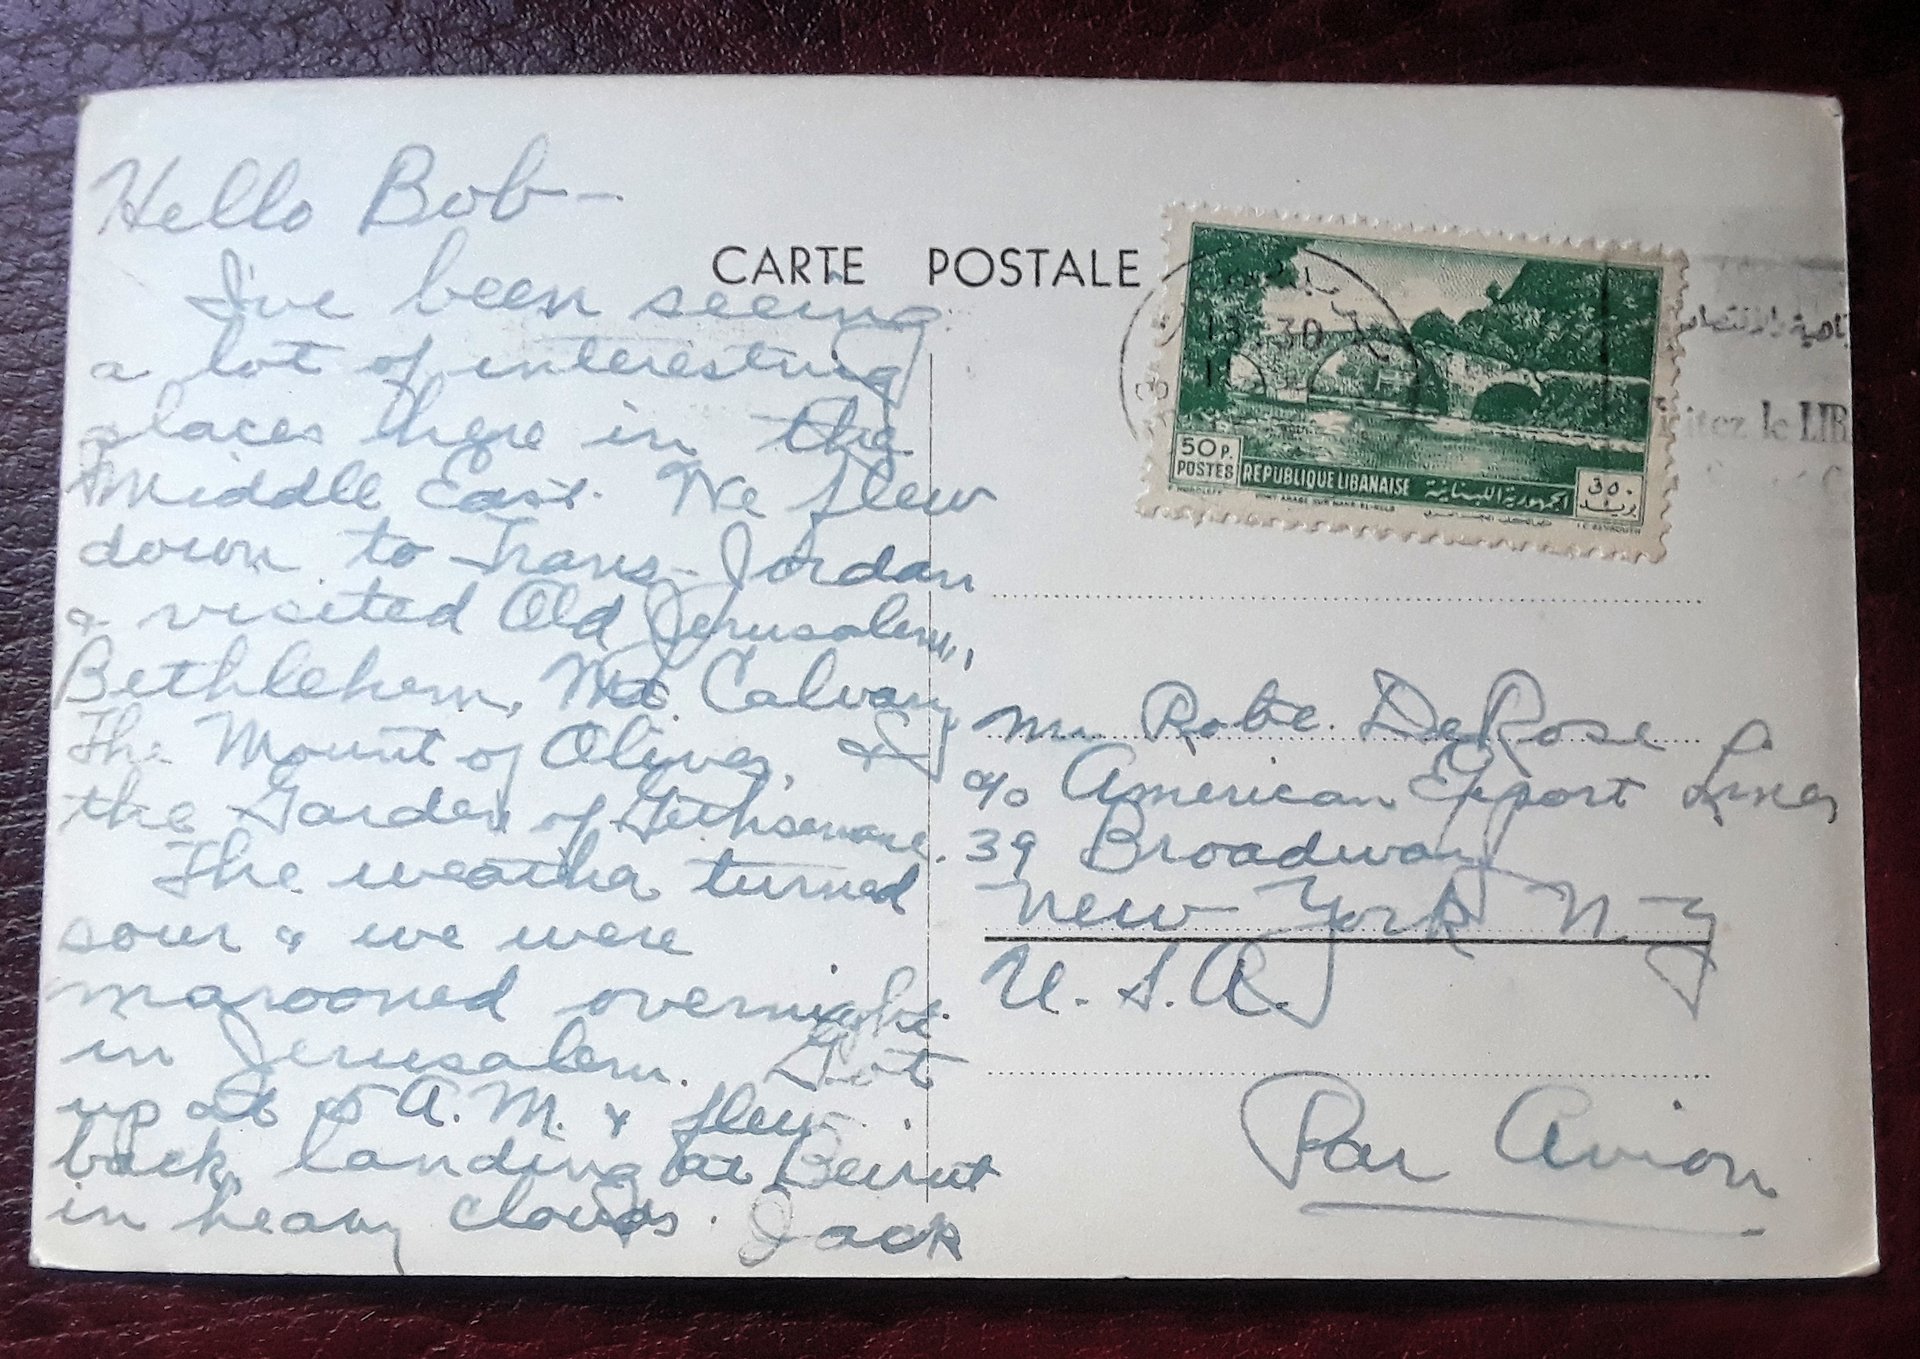 Hello Bob-
I've been seeing
a lot of interesting
places here in the
Middle East. We flew
down to Trans-Jordan
& visited Old Jerusalem,
Bethlehem, Mt. Calvary
The Mount of Olives, &
the Garden of Gethsemane.
The weather turned
sour & we were
marooned overnight
in Jerusalem. Got
up at 5 A.M. & flew
back, landing at Beirut
in heavy clouds. Jack
CARTE POSTALE
13 30
50 P.
POSTES
REPUBLIQUE LIBANAISE
الجمهورية اللبنانية
٥٠
بريد
PONT ARABE SUR NAHR-EL-KELB
itez le LIB
Mr. Robt. DeRose
c/o American Export Lines
39 Broadway
New York N.Y
U.S.A.
Par Avion